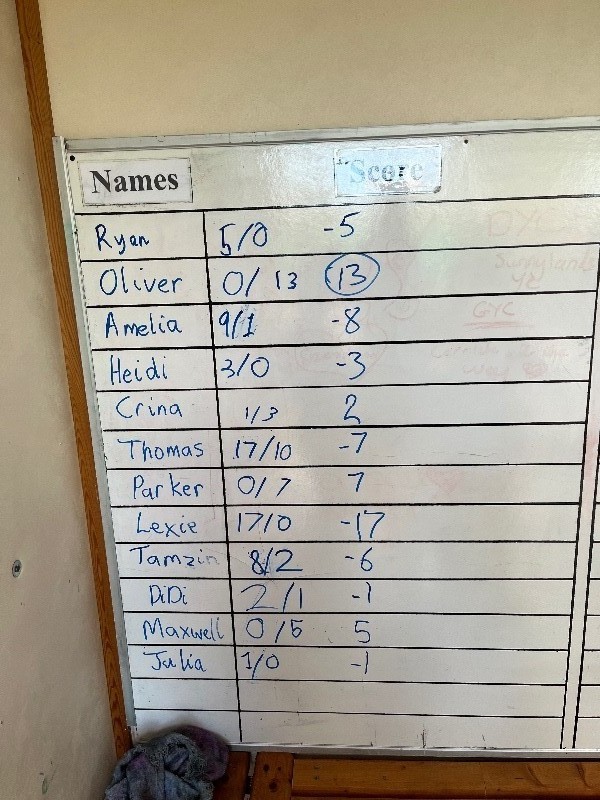 Names Score
Ryan 5/0 -5
Oliver 0/ 13 13
Amelia 9/1 -8
Heidi 3/0 -3
Crina 1/3 2
Thomas 17/10 -7
Parker 0/7 7
Lexie 17/0 -17
Tamzin 8/2 -6
DiDi 2/1 -1
Maxwell 0/5 5
Julia 1/0 -1
GYC